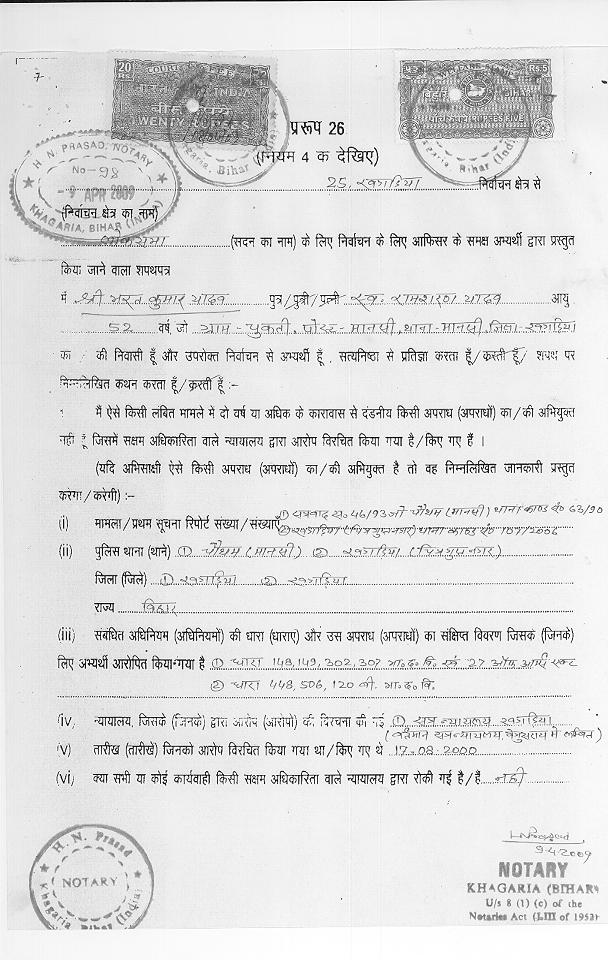 20 RS.
COURT FEE
INDIA
बीस रुपये
TWENTY RUPEES
WELFARE
पाँच रुपये RUPEES FIVE
Khagaria, Bihar (India)
Bihar (India)
H. N. PRASAD, NOTARY
No-98
9 APR 2009
KHAGARIA, BIHAR (INDIA)
प्ररूप 26
(नियम 4 क देखिए)
25, खगड़िया निर्वाचन क्षेत्र से
(निर्वाचन क्षेत्र का नाम)
लोकसभा (सदन का नाम) के लिए निर्वाचन के लिए आफिसर के समक्ष अभ्यर्थी द्वारा प्रस्तुत
किया जाने वाला शपथपत्र
मैं श्री भरत कुमार यादव पुत्र/पुत्री/पत्नी स्व. रामशरण यादव आयु
52 वर्ष, जो ग्राम-चुकती, पोस्ट-मानसी, थाना-मानसी, जिला-खगड़िया
का / की निवासी हूँ और उपरोक्त निर्वाचन से अभ्यर्थी हूँ, सत्यनिष्ठा से प्रतिज्ञा करता हूँ/करती हूँ/ शपथ पर
निम्नलिखित कथन करता हूँ/करती हूँ :-
मैं ऐसे किसी लंबित मामले में दो वर्ष या अधिक के कारावास से दंडनीय किसी अपराध (अपराधों) का/की अभियुक्त
नहीं हूँ जिसमें सक्षम अधिकारिता वाले न्यायालय द्वारा आरोप विरचित किया गया है/किए गए हैं ।
(यदि अभिसाक्षी ऐसे किसी अपराध (अपराधों) का/की अभियुक्त है तो वह निम्नलिखित जानकारी प्रस्तुत
करेगा/करेगी) :-
(i) मामला/प्रथम सूचना रिपोर्ट संख्या/संख्याएँ ① सत्रवाद सं० 46/93 जी चौथम (मानसी) थाना काण्ड सं० 63/90
② खगड़िया (चित्रगुप्तनगर) थाना काण्ड सं० 107/2006
(ii) पुलिस थाना (थाने) ① चौथम (मानसी) ② खगड़िया (चित्रगुप्तनगर)
जिला (जिले) ① खगड़िया ② खगड़िया
राज्य बिहार
(iii) संबंधित अधिनियम (अधिनियमों) की धारा (धाराए) और उस अपराध (अपराधों) का संक्षिप्त विवरण जिसके (जिनके)
लिए अभ्यर्थी आरोपित किया गया है ① धारा 148,149,302,307 भा.द.वि. एवं 27 ऑफ आर्म्स एक्ट
② धारा 448,506,120 बी. भा.द.वि.
iv. न्यायालय, जिसके (जिनके) द्वारा आरोप (आरोपो) की विरचना की गई ① सत्र न्यायालय खगड़िया
(वर्तमान सत्र न्यायालय, बेगुसराय में लंबित)
(v) तारीख (तारीखें) जिनको आरोप विरचित किया गया था/किए गए थे 17-08-2000
(vi) क्या सभी या कोई कार्यवाही किसी सक्षम अधिकारिता वाले न्यायालय द्वारा रोकी गई है/हैं नहीं
H. N. Prasad
NOTARY
Khagaria, Bihar (India)
9-4-2009
NOTARY
KHAGARIA (BIHAR)
U/s 8 (1) (c) of the
Notaries Act (LIII of 1952)